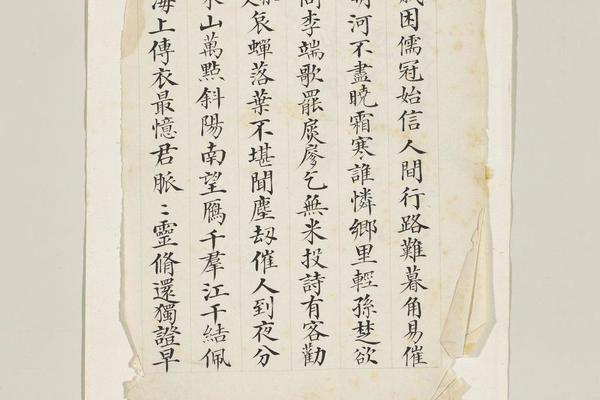 困儒冠始信人間行路難暮角易催
河不盡曉霜寒誰憐鄉里輕孫楚欲
李端歌罷扊扅乞無米投詩有客勸
哀蟬落葉不堪聞塵劫催人到夜分
山萬點斜陽南望鴈千羣江干結佩
海上傳衣最憶君脈〻靈脩還獨證早